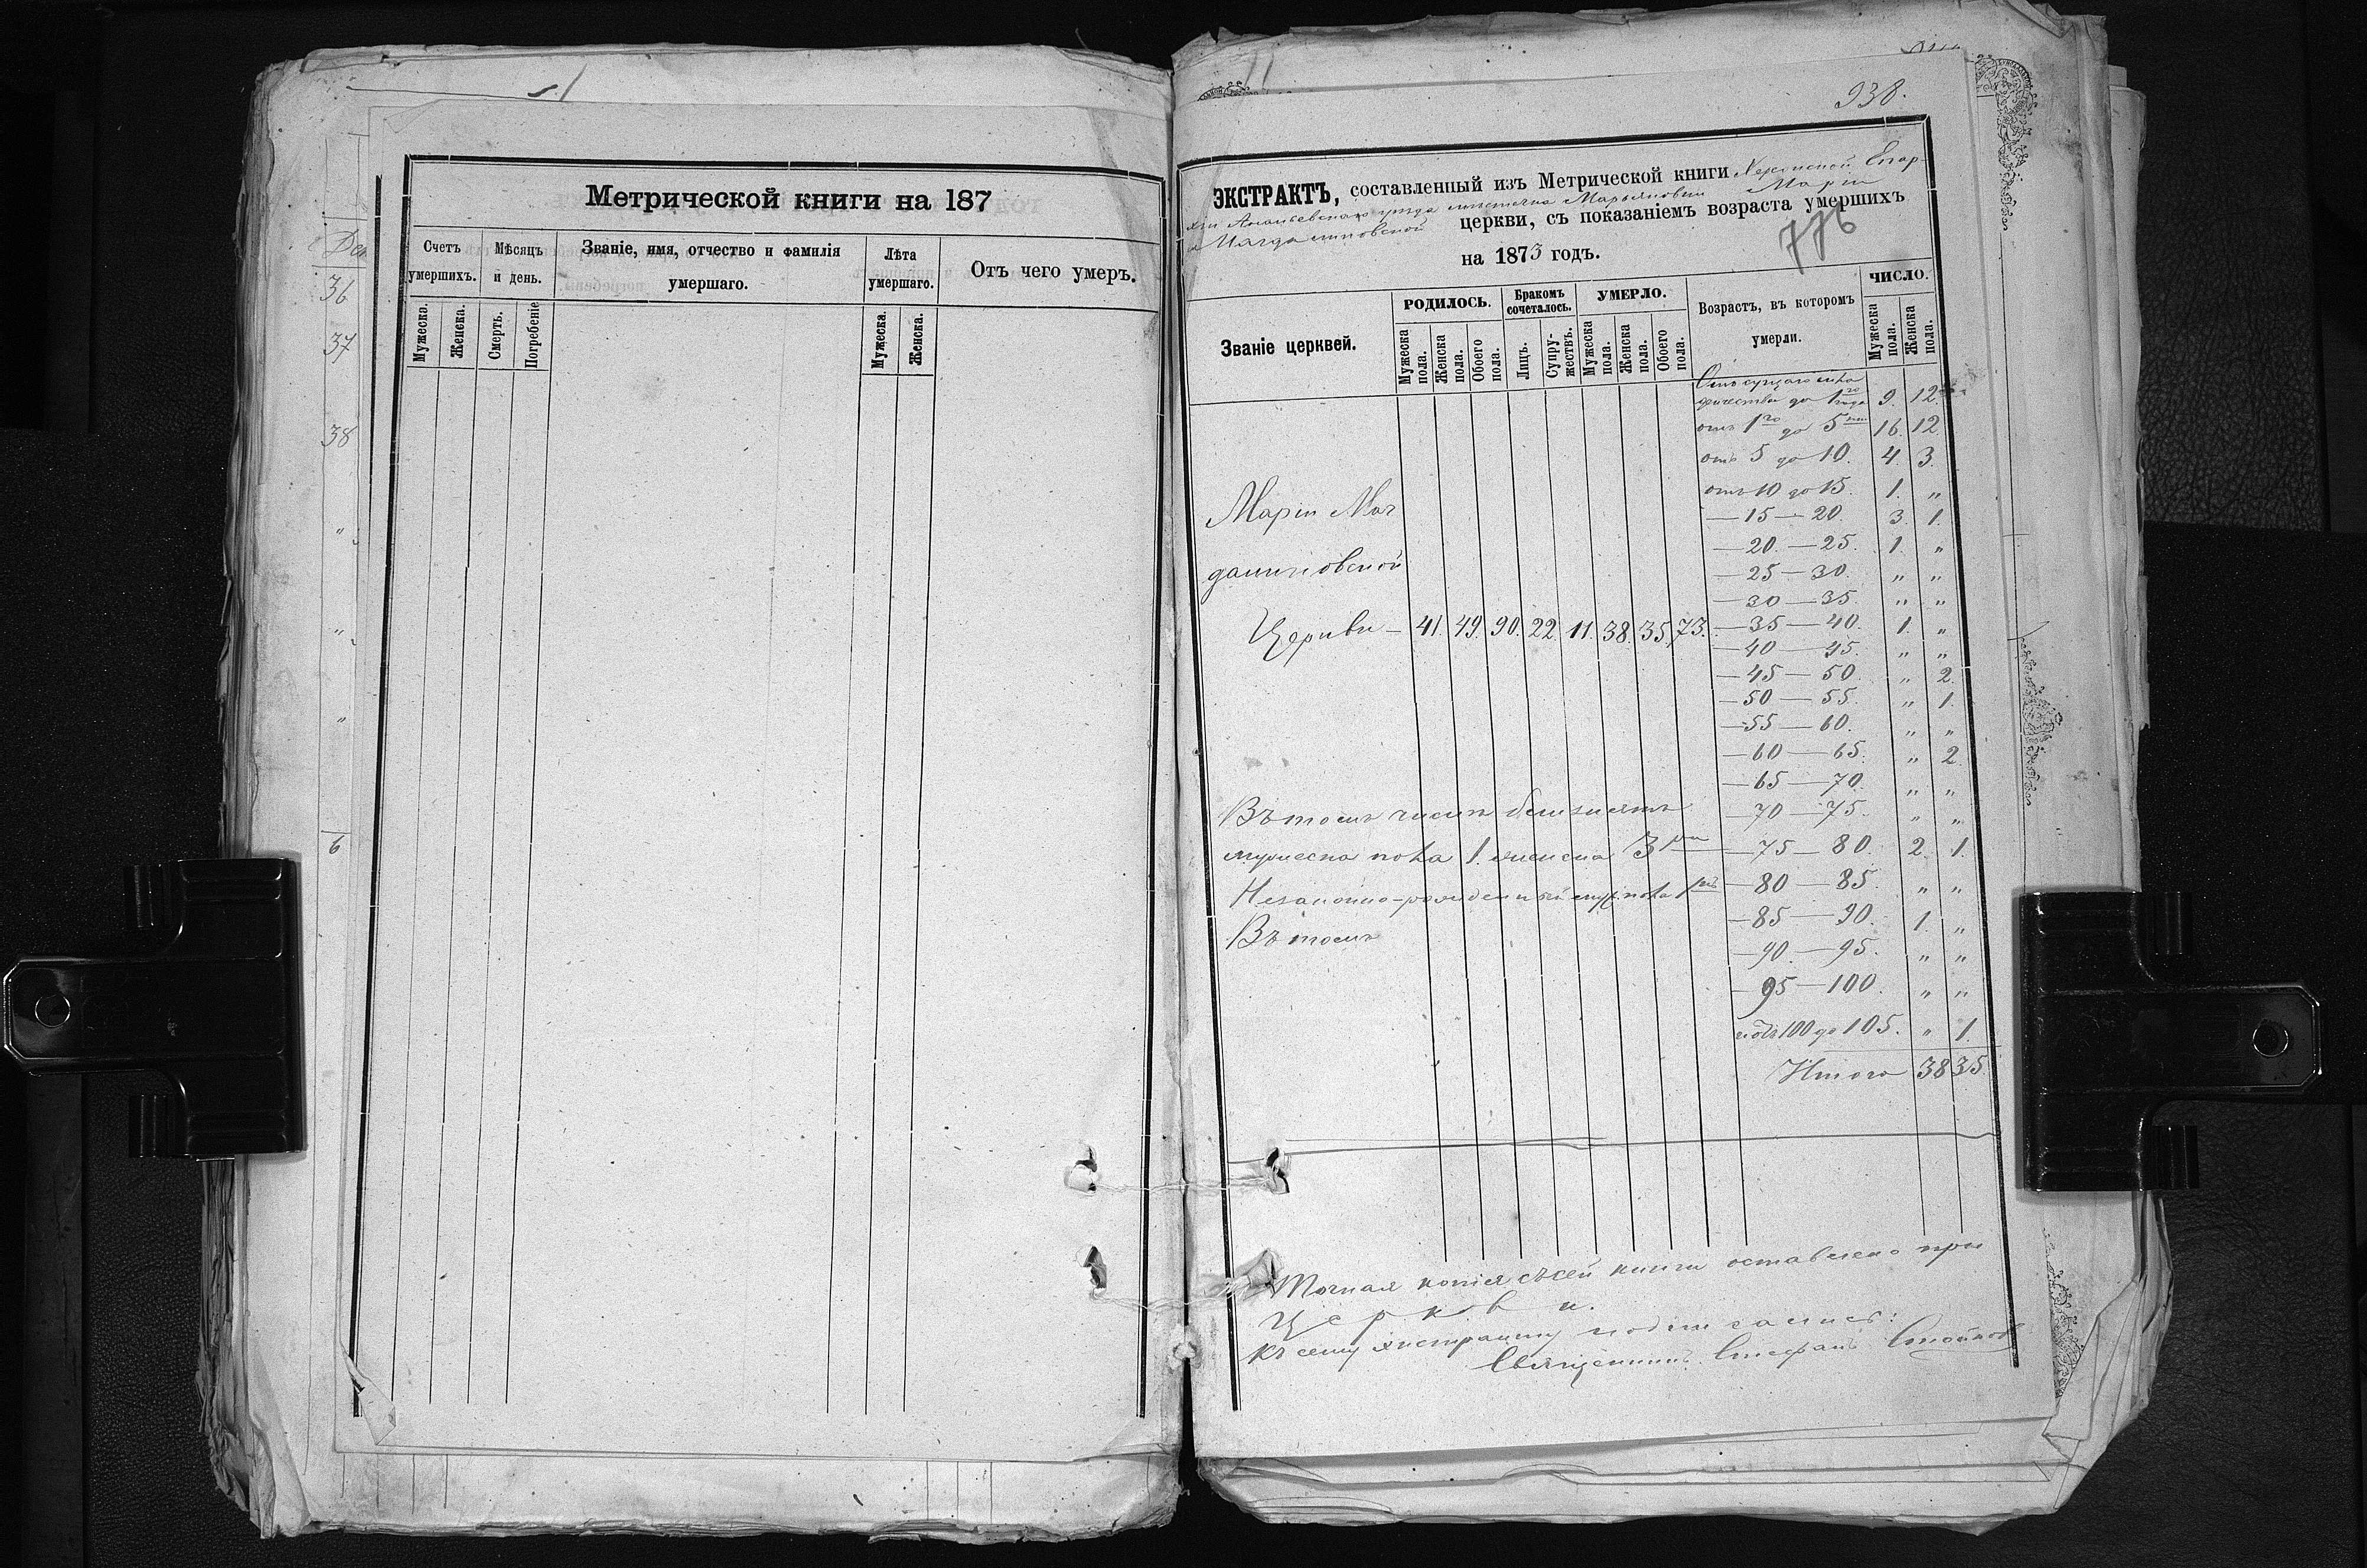 Метрической книги на 187
Счетъ умершихъ.
Мѣсяцъ и день.
Званіе, имя, отчество и фамилія умершаго.
Лѣта умершаго.
Отъ чего умеръ.
Мужеска.
Женска.
Смерть.
Погребеніе
Мужеска.
Женска.
36
37
38
"
"
"
6
938.
ЭКСТРАКТЪ, составленный изъ Метрической книги Херсонской Епар-
хіи Ананьевскаго уѣзда мѣстечка Марьяновки Маріи
Магдалиновской церкви, съ показаніемъ возраста умершихъ
776
на 1873 годъ.
Званіе церквей.
РОДИЛОСЬ.
Бракомъ сочеталось.
УМЕРЛО.
Возрастъ, въ которомъ умерли.
ЧИСЛО.
Мужеска пола.
Женска пола.
Обоего пола.
Лицъ.
Супружествъ.
Мужеска пола.
Женска пола.
Обоего пола.
Мужеска пола.
Женска пола.
до 1го года 9. 12.
отъ 1го до 5ти 16. 12
отъ 5 до 10. 4. 3.
отъ 10 до 15. 1. "
— 15 — 20. 3. 1.
— 20. — 25. 1. "
— 25 — 30. " "
— 30 — 35. " "
— 35 — 40. 1. "
— 40 — 45. " "
— 45 — 50. " 2.
— 50 — 55. " 1.
— 55 — 60. " "
— 60 — 65. " 2.
— 65 — 70. " "
— 70 — 75. " "
— 75 — 80. 2. 1.
— 80 — 85. " "
— 85 — 90. 1. "
— 90. — 95. " "
— 95 — 100. " "
100 до 105. " 1.
Итого 38 35
Маріи Маг
далиновской
Церкви — 41. 49. 90. 22. 11. 38. 35. 73.
Въ томъ числѣ близнятъ
мужеска пола 1. женска 3
Незаконно-рожденный муж. пола
Въ томъ
Точная копія съ сей книги оставлена при
Церкви.
Къ сему экстракту подписались:
Священникъ Стефанъ Стойков